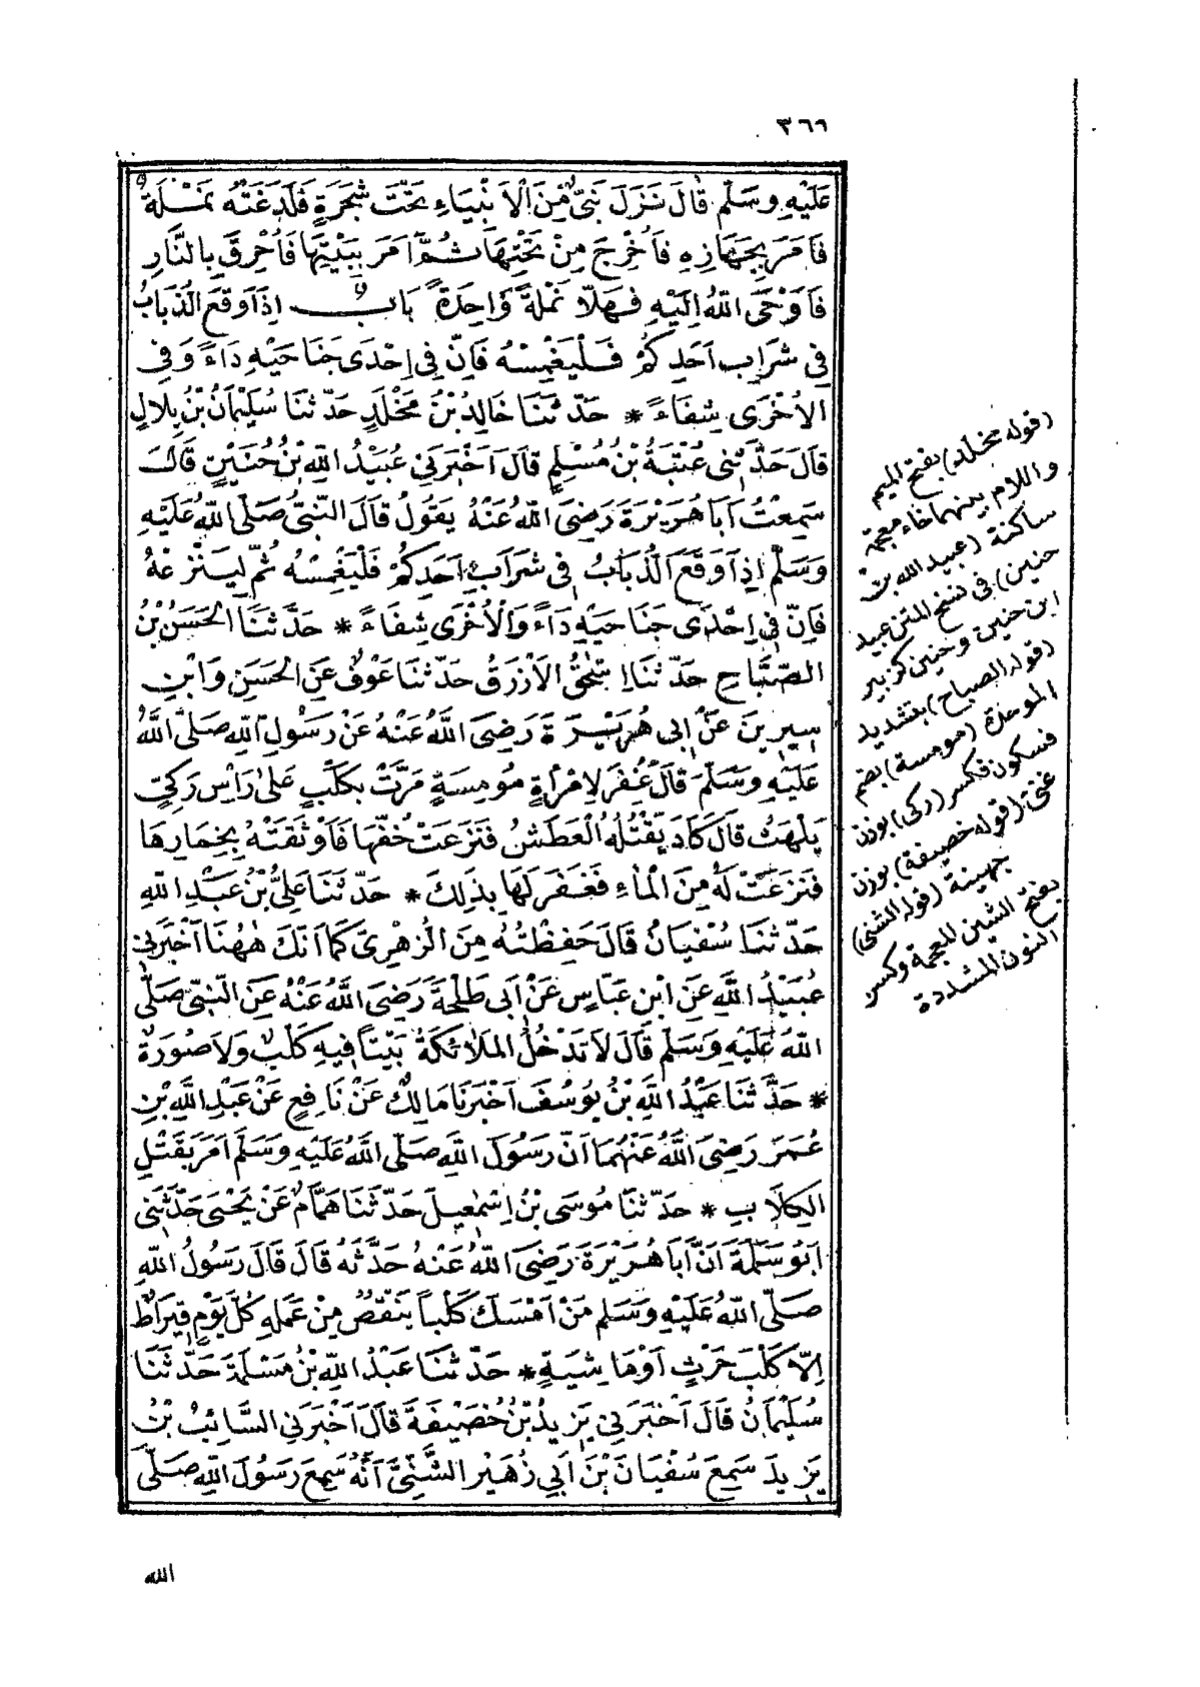 ٣٦٦
عَلَيْهِ وَسَلَّمَ قَالَ نَزَلَ نَبِىٌّ مِنَ الْاَنْبِيَاءِ تَحْتَ شَجَرَةٍ فَلَدَغَتْهُ نَمْلَةٌ
فَاَمَرَ بِجَهَازِهِ فَاُخْرِجَ مِنْ تَحْتِهَا ثُمَّ اَمَرَ بِبَيْتِهَا فَاُحْرِقَ بِالنَّارِ
فَاَوْحَى اللّٰهُ اِلَيْهِ فَهَلَّا نَمْلَةً وَاحِدَةً بَابٌ اِذَا وَقَعَ الذُّبَابُ
فِى شَرَابِ اَحَدِكُمْ فَلْيَغْمِسْهُ فَاِنَّ فِى اِحْدَى جَنَاحَيْهِ دَاءً وَفِى
الْاُخْرَى شِفَاءً * حَدَّثَنَا خَالِدُ بْنُ مَخْلَدٍ حَدَّثَنَا سُلَيْمَانُ بْنُ بِلَالٍ
قَالَ حَدَّثَنِى عُتْبَةُ بْنُ مُسْلِمٍ قَالَ اَخْبَرَنِى عُبَيْدُ اللّٰهِ بْنُ حُنَيْنٍ قَالَ
سَمِعْتُ اَبَا هُرَيْرَةَ رَضِىَ اللّٰهُ عَنْهُ يَقُولُ قَالَ النَّبِىُّ صَلَّى اللّٰهُ عَلَيْهِ
وَسَلَّمَ اِذَا وَقَعَ الذُّبَابُ فِى شَرَابِ اَحَدِكُمْ فَلْيَغْمِسْهُ ثُمَّ لِيَنْزِعْهُ
فَاِنَّ فِى اِحْدَى جَنَاحَيْهِ دَاءً وَالْاُخْرَى شِفَاءً * حَدَّثَنَا الْحَسَنُ بْنُ
الصَّبَّاحِ حَدَّثَنَا اِسْحٰقُ الْاَزْرَقُ حَدَّثَنَا عَوْفٌ عَنِ الْحَسَنِ وَابْنِ
سِيرِينَ عَنْ اَبِى هُرَيْرَةَ رَضِىَ اللّٰهُ عَنْهُ عَنْ رَسُولِ اللّٰهِ صَلَّى اللّٰهُ
عَلَيْهِ وَسَلَّمَ قَالَ غُفِرَ لِامْرَاَةٍ مُومِسَةٍ مَرَّتْ بِكَلْبٍ عَلَى رَأْسِ رَكِىٍّ
يَلْهَثُ قَالَ كَادَ يَقْتُلُهُ الْعَطَشُ فَنَزَعَتْ خُفَّهَا فَاَوْثَقَتْهُ بِخِمَارِهَا
فَنَزَعَتْ لَهُ مِنَ الْمَاءِ فَغُفِرَ لَهَا بِذٰلِكَ * حَدَّثَنَا عَلِىُّ بْنُ عَبْدِ اللّٰهِ
حَدَّثَنَا سُفْيَانُ قَالَ حَفِظْتُهُ مِنَ الزُّهْرِىِّ كَمَا اَنَّكَ هٰهُنَا اَخْبَرَنِى
عُبَيْدُ اللّٰهِ عَنِ ابْنِ عَبَّاسٍ عَنْ اَبِى طَلْحَةَ رَضِىَ اللّٰهُ عَنْهُ عَنِ النَّبِىِّ صَلَّى
اللّٰهُ عَلَيْهِ وَسَلَّمَ قَالَ لَا تَدْخُلُ الْمَلَائِكَةُ بَيْتًا فِيهِ كَلْبٌ وَلَا صُورَةٌ
* حَدَّثَنَا عَبْدُ اللّٰهِ بْنُ يُوسُفَ اَخْبَرَنَا مَالِكٌ عَنْ نَافِعٍ عَنْ عَبْدِ اللّٰهِ بْنِ
عُمَرَ رَضِىَ اللّٰهُ عَنْهُمَا اَنَّ رَسُولَ اللّٰهِ صَلَّى اللّٰهُ عَلَيْهِ وَسَلَّمَ اَمَرَ بِقَتْلِ
الْكِلَابِ * حَدَّثَنَا مُوسَى بْنُ اِسْمٰعِيلَ حَدَّثَنَا هَمَّامٌ عَنْ يَحْيَى حَدَّثَنِى
اَبُو سَلَمَةَ اَنَّ اَبَا هُرَيْرَةَ رَضِىَ اللّٰهُ عَنْهُ حَدَّثَهُ قَالَ قَالَ رَسُولُ اللّٰهِ
صَلَّى اللّٰهُ عَلَيْهِ وَسَلَّمَ مَنْ اَمْسَكَ كَلْبًا يَنْقُصُ مِنْ عَمَلِهِ كُلَّ يَوْمٍ قِيرَاطٌ
اِلَّا كَلْبَ حَرْثٍ اَوْ مَاشِيَةٍ * حَدَّثَنَا عَبْدُ اللّٰهِ بْنُ مَسْلَمَةَ حَدَّثَنَا
سُلَيْمَانُ قَالَ اَخْبَرَنِى يَزِيدُ بْنُ خُصَيْفَةَ قَالَ اَخْبَرَنِى السَّائِبُ بْنُ
يَزِيدَ سَمِعَ سُفْيَانَ بْنَ اَبِى زُهَيْرٍ الشَّنِىَّ اَنَّهُ سَمِعَ رَسُولَ اللّٰهِ صَلَّى
(قوله مخلد) بفتح الميم
واللام بينهما خاء معجمة
ساكنة (عبيد الله بن
حنين) فى نسخ المتن عبيد
ابن حنين وحنين كزبير
(قوله الصباح) بتشديد
الموحدة (مومسة) بضم
فسكون فكسر (ركى) بوزن
غنى (قوله خصيفة) بوزن
جهينة (قوله الشنى)
بفتح الشين المعجمة وكسر
النون المشددة
الله